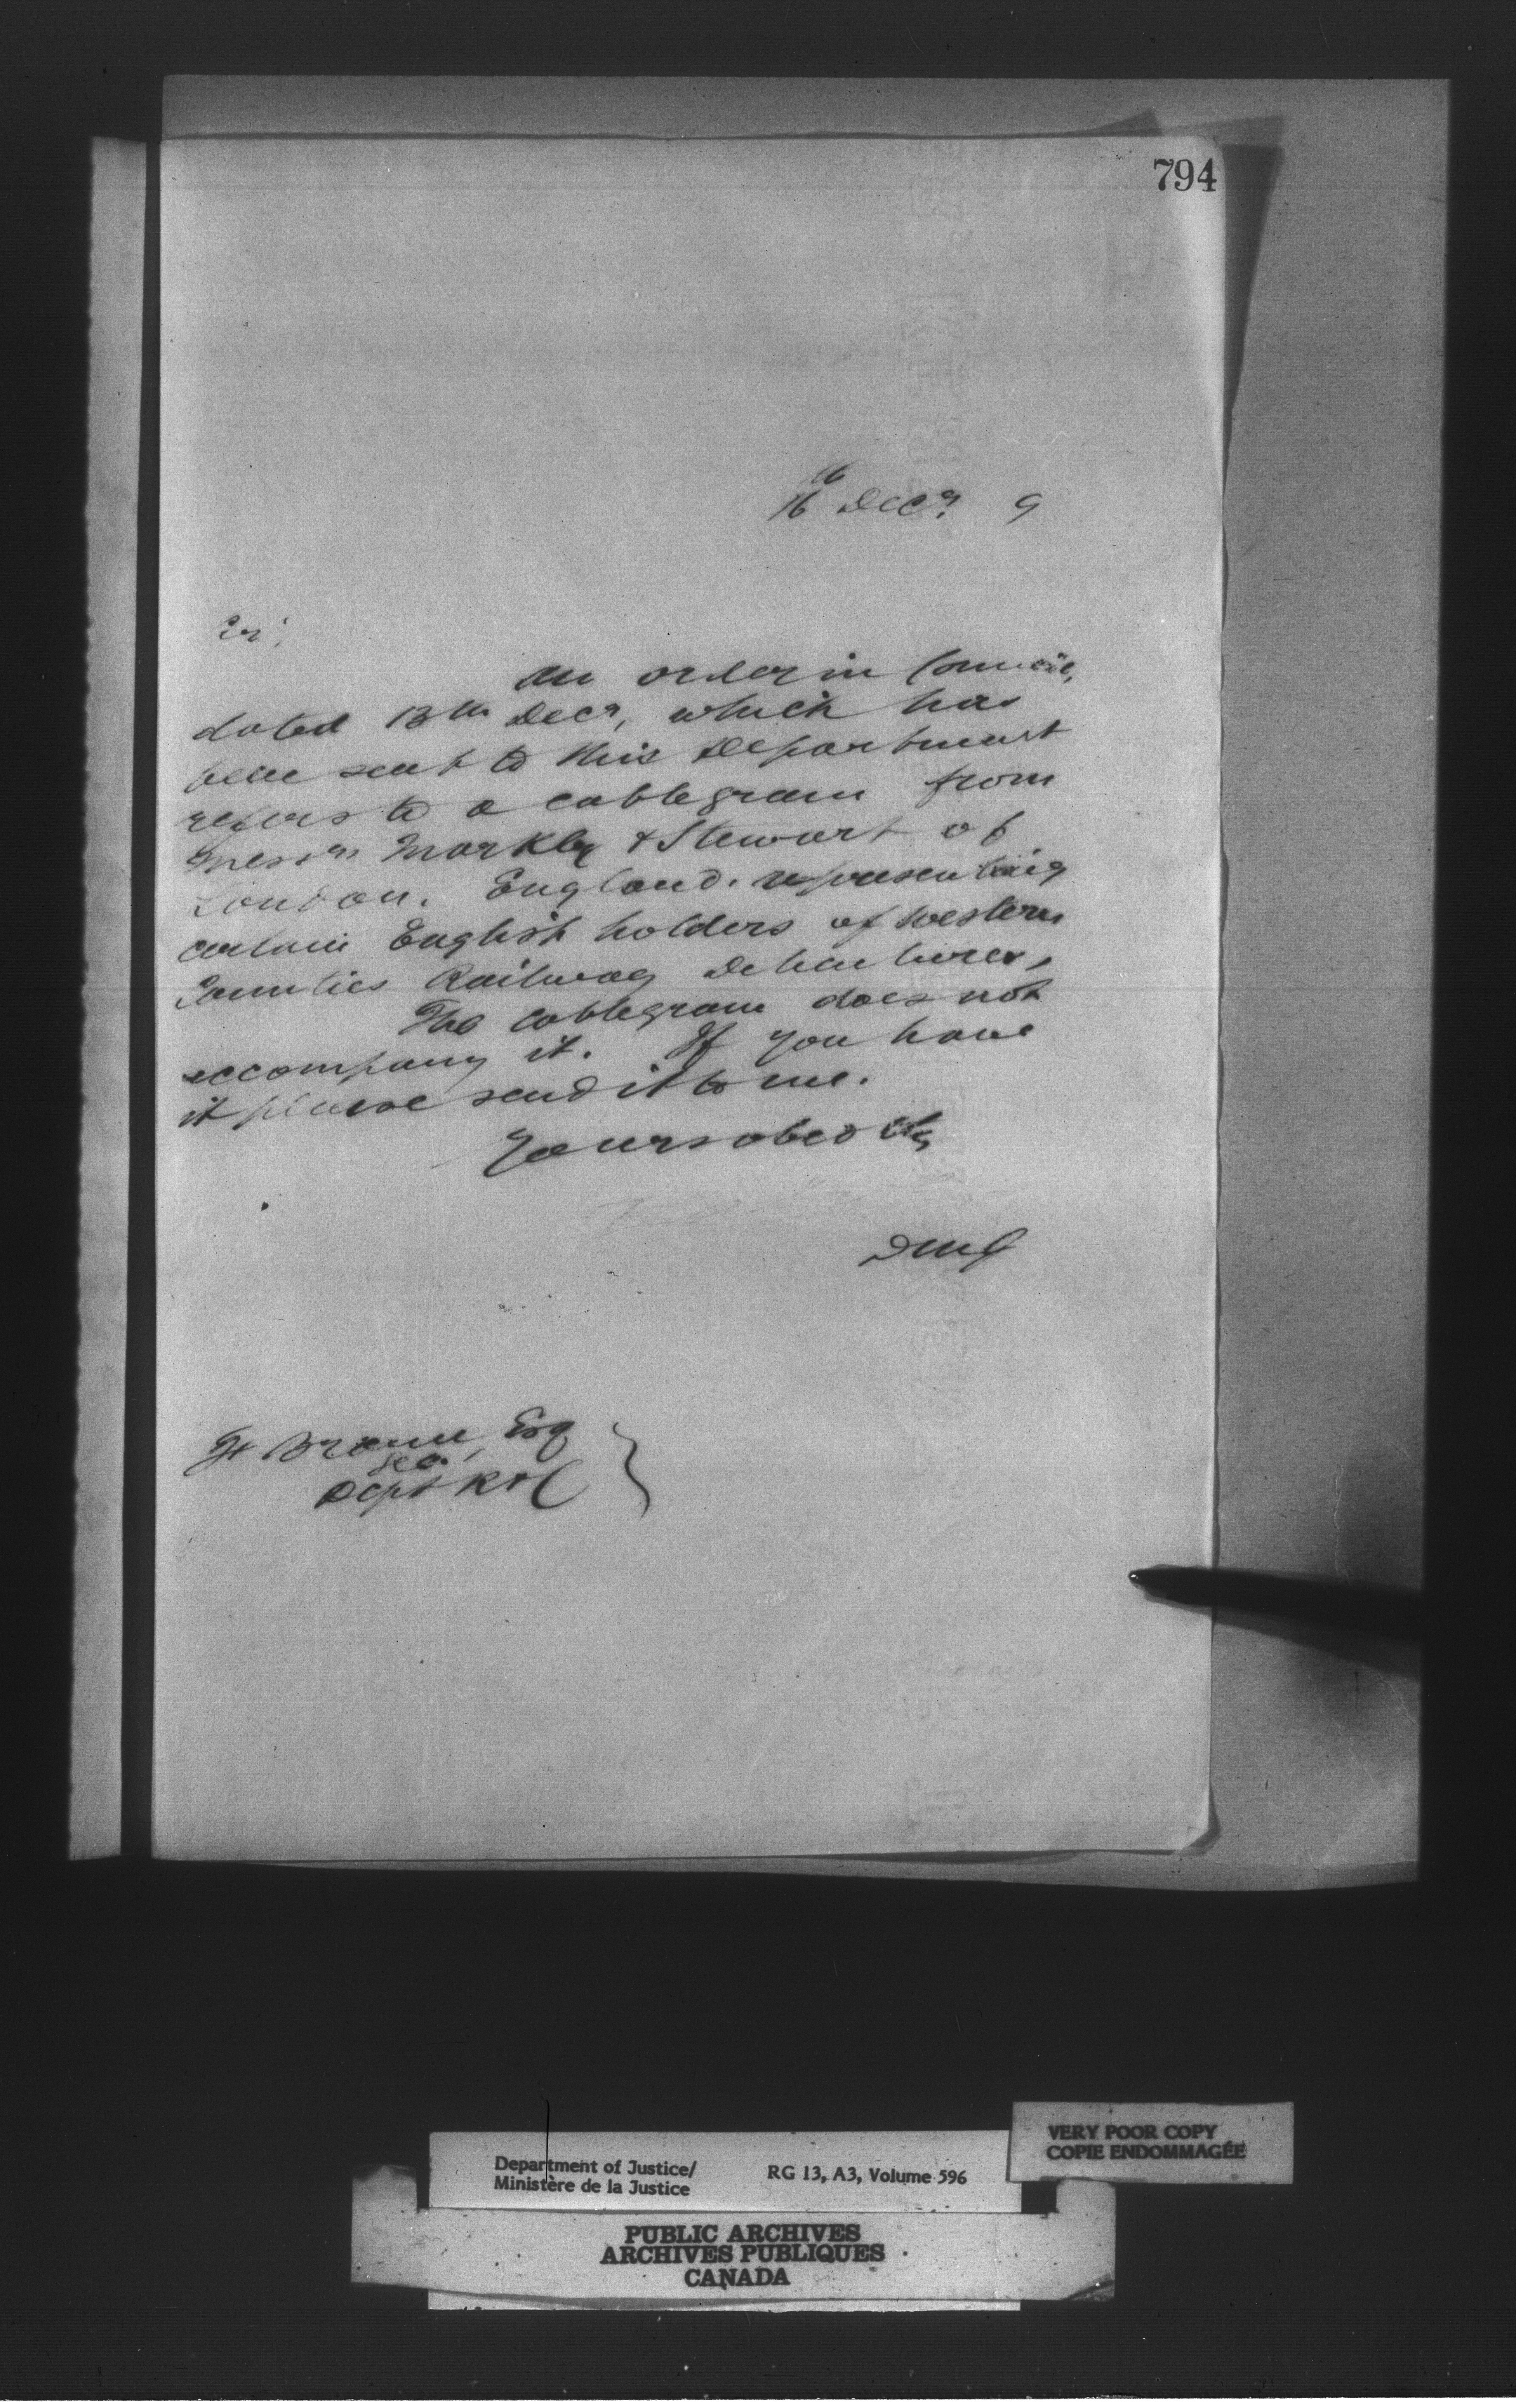 794
16th Decr. 9
Sir,
An order in Council,
dated 13th Decr, which has
been sent to this Department
refers to a cablegram from
Messrs Markby & Stewart of
London. England. representing
certain English holders of Western
Counties Railway Debentures,
The cablegram does not
accompany it. If you have
it please send it to me.
Yours obed etc
DMJ
Esq
Sec.
Dept R & C
VERY POOR COPY
COPIE ENDOMMAGÉE
Department of Justice/ RG 13, A3, Volume 596
Ministère de la Justice
PUBLIC ARCHIVES
ARCHIVES PUBLIQUES
CANADA